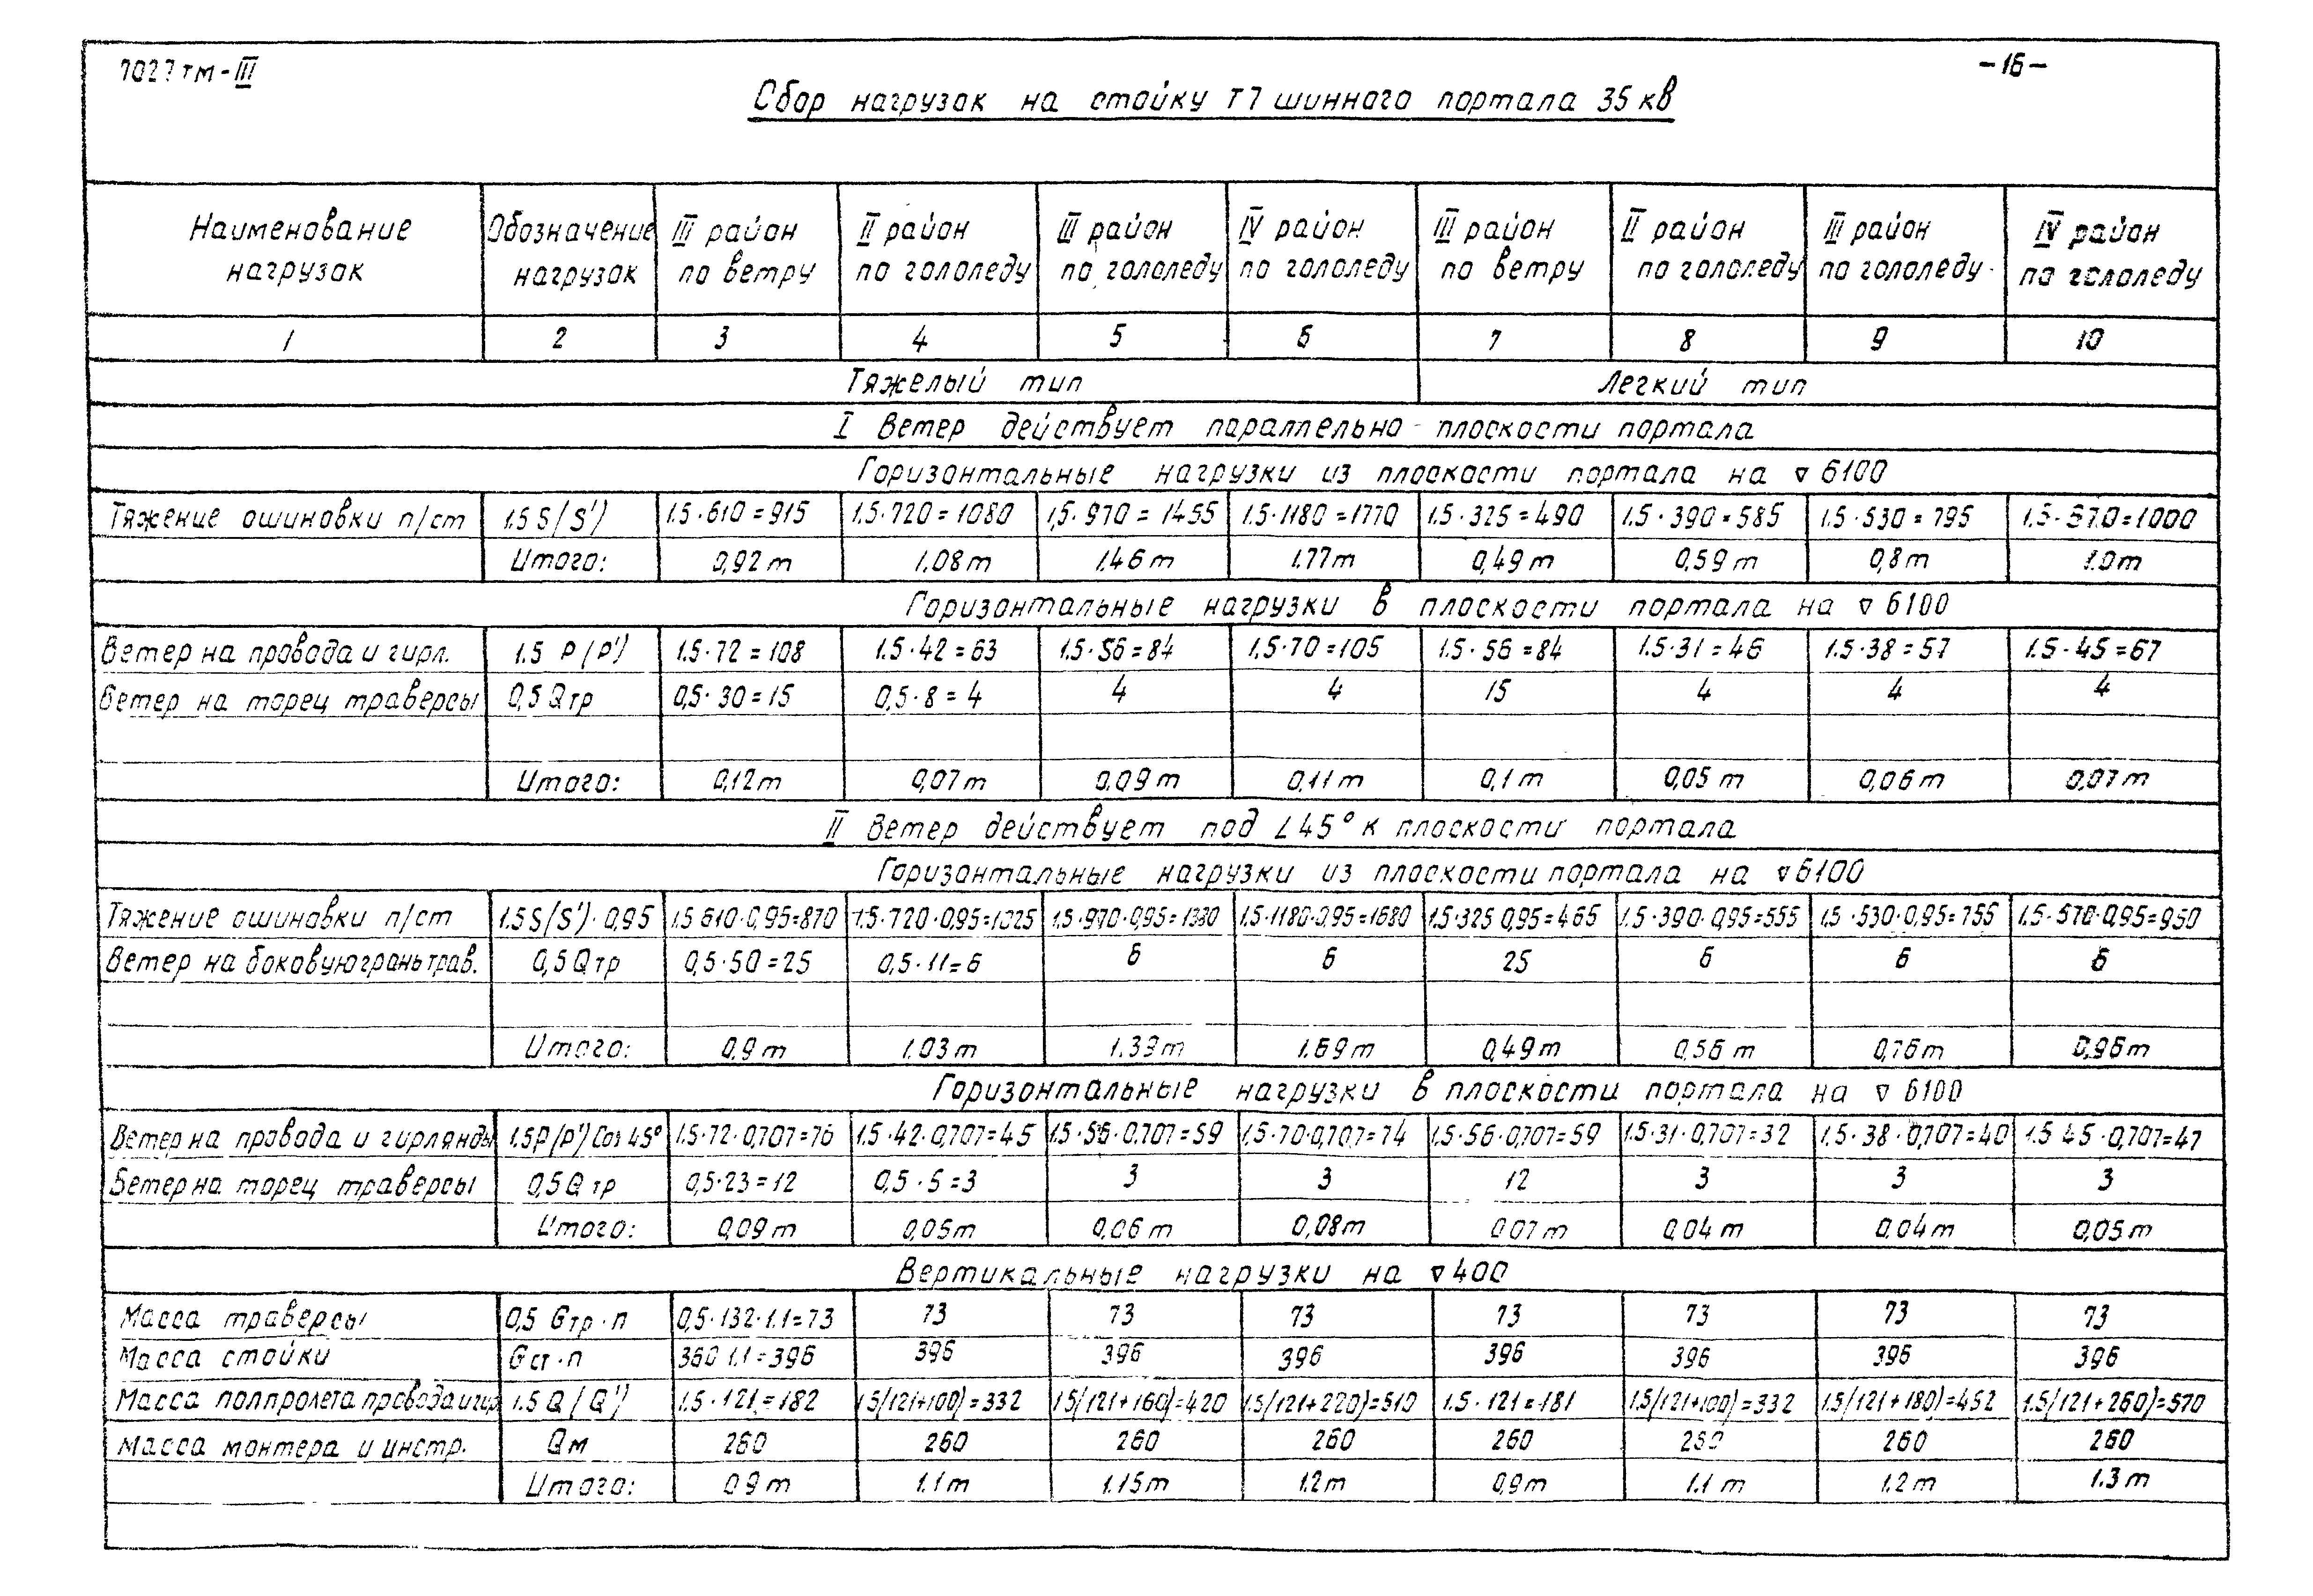 7027тм-III
-16-
Сбор нагрузок на стойку Т7 шинного портала 35 кв
Наименование нагрузок | Обозначение нагрузок | III район по ветру | II район по гололеду | III район по гололеду | IV район по гололеду | III район по ветру | II район по гололеду | III район по гололеду | IV район по гололеду
1 2 3 4 5 6 7 8 9 10
Тяжелый тип | Легкий тип
I Ветер действует параллельно плоскости портала
Горизонтальные нагрузки из плоскости портала на ▽ 6100
Тяжение ошиновки п/ст | 1.5 S/S') | 1.5·610=915 | 1.5·720=1080 | 1,5·970=1455 | 1.5·1180=1770 | 1.5·325=490 | 1.5·390=585 | 1.5·530=795 | 1.5·670=1000
Итого: | 0,92т | 1.08т | 1.46т | 1.77т | 0,49т | 0,59т | 0,8т | 1.0т
Горизонтальные нагрузки в плоскости портала на ▽ 6100
Ветер на провода и гирл. | 1.5 P/P') | 1.5·72=108 | 1.5·42=63 | 1.5·56=84 | 1.5·70=105 | 1.5·56=84 | 1.5·31=46 | 1.5·38=57 | 1.5·45=67
Ветер на торец траверсы | 0,5 Qтр | 0,5·30=15 | 0,5·8=4 | 4 | 4 | 15 | 4 | 4 | 4
Итого: | 0,12т | 0,07т | 0,09т | 0,11т | 0,1т | 0,05т | 0,06т | 0,07т
II Ветер действует под ∠45° к плоскости портала
Горизонтальные нагрузки из плоскости портала на ▽6100
Тяжение ошиновки п/ст | 1.5S/S')·0,95 | 1.5 610·0,95=870 | 1.5·720·0,95=1025 | 1.5·970·0,95=1380 | 1.5·1180·0,95=1680 | 1.5·325 0,95=465 | 1.5·390·0,95=555 | 1,5·530·0,95=755 | 1.5·670·0,95=950
Ветер на боковую грань трав. | 0,5 Qтр | 0,5·50=25 | 0,5·11=6 | 6 | 6 | 25 | 6 | 6 | 6
Итого: | 0,9т | 1.03т | 1.39т | 1.69т | 0,49т | 0,56т | 0,76т | 0,96т
Горизонтальные нагрузки в плоскости портала на ▽ 6100
Ветер на провода и гирлянды | 1.5P/P') Cos 45° | 1.5·72·0,707=76 | 1.5·42·0,707=45 | 1.5·56·0,707=59 | 1.5·70·0,707=74 | 1.5·56·0,707=59 | 1.5·31·0,707=32 | 1.5·38·0,707=40 | 1.5 45·0,707=47
Ветер на торец траверсы | 0,5Q тр | 0,5·23=12 | 0,5·6=3 | 3 | 3 | 12 | 3 | 3 | 3
Итого: | 0,09т | 0,05т | 0,06т | 0,08т | 0,07т | 0,04т | 0,04т | 0,05т
Вертикальные нагрузки на ▽400
Масса траверсы | 0,5 Gтр·п | 0,5·132·1.1=73 | 73 | 73 | 73 | 73 | 73 | 73 | 73
Масса стойки | Gст·п | 360 1.1=396 | 396 | 396 | 396 | 396 | 396 | 396 | 396
Масса полпролета провода и гир | 1.5 Q/Q') | 1.5·121=182 | 1.5/121+100)=332 | 1.5/121+160)=420 | 1.5/121+220)=510 | 1.5·121=181 | 1.5/121+100)=332 | 1.5/121+180)=452 | 1.5/121+260)=570
Масса монтера и инстр. | Qм | 260 | 260 | 260 | 260 | 260 | 260 | 260 | 260
Итого: | 0.9т | 1.1т | 1.15т | 1.2т | 0,9т | 1.1т | 1.2т | 1.3т